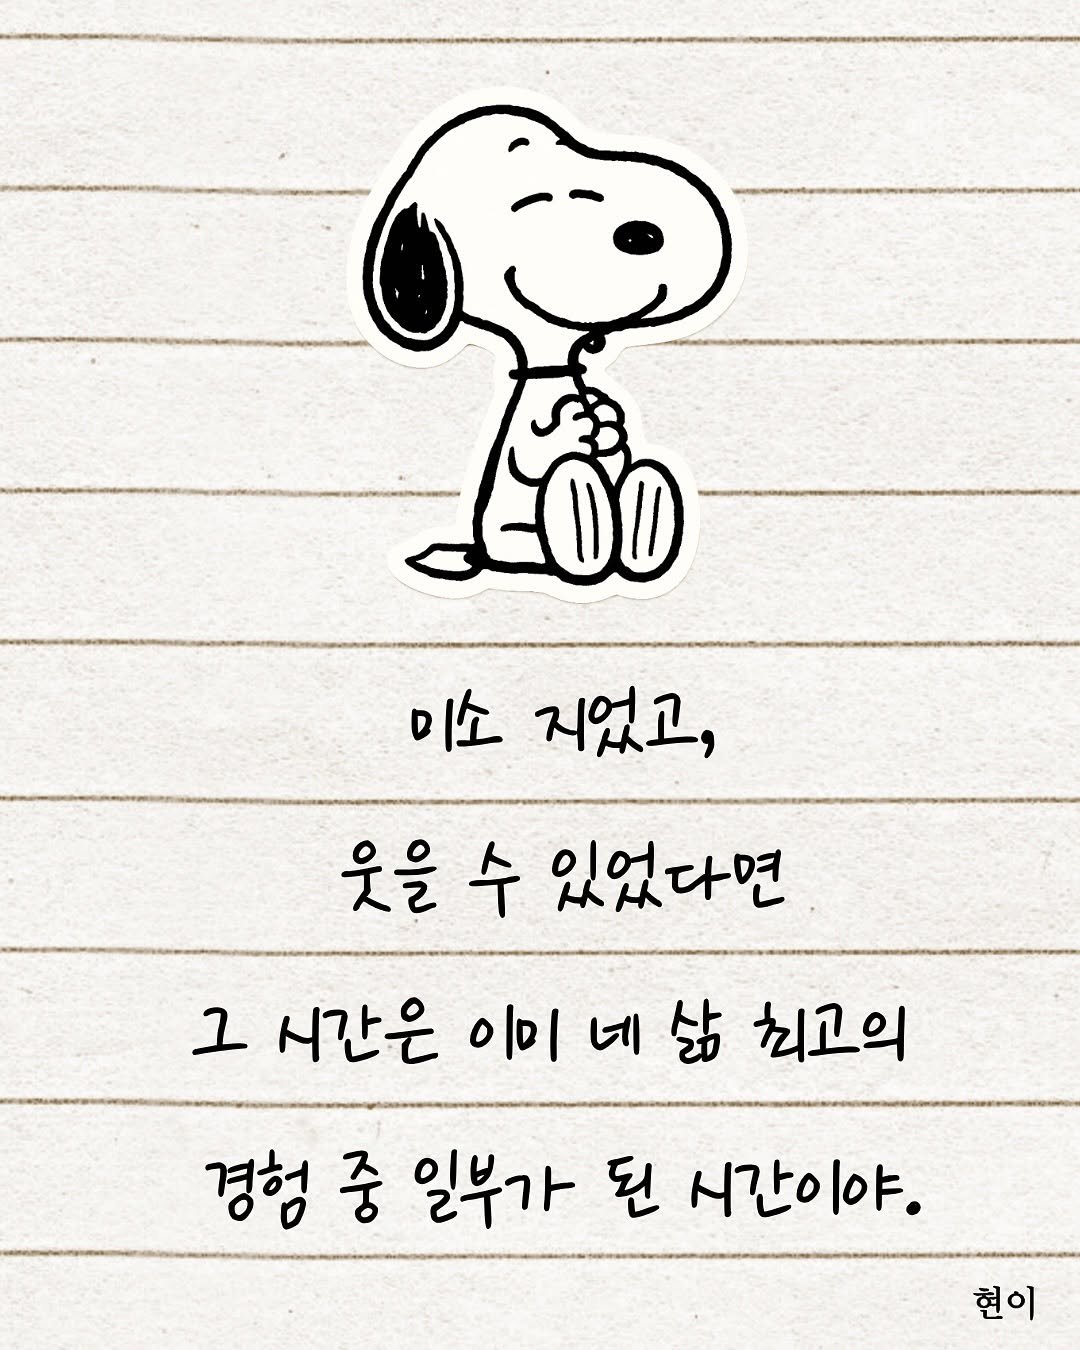 미소 지었고,
웃을 수 있었다면
그 시간은 이미 네 삶 최고의
경험 중 일부가 된 시간이야.
현이